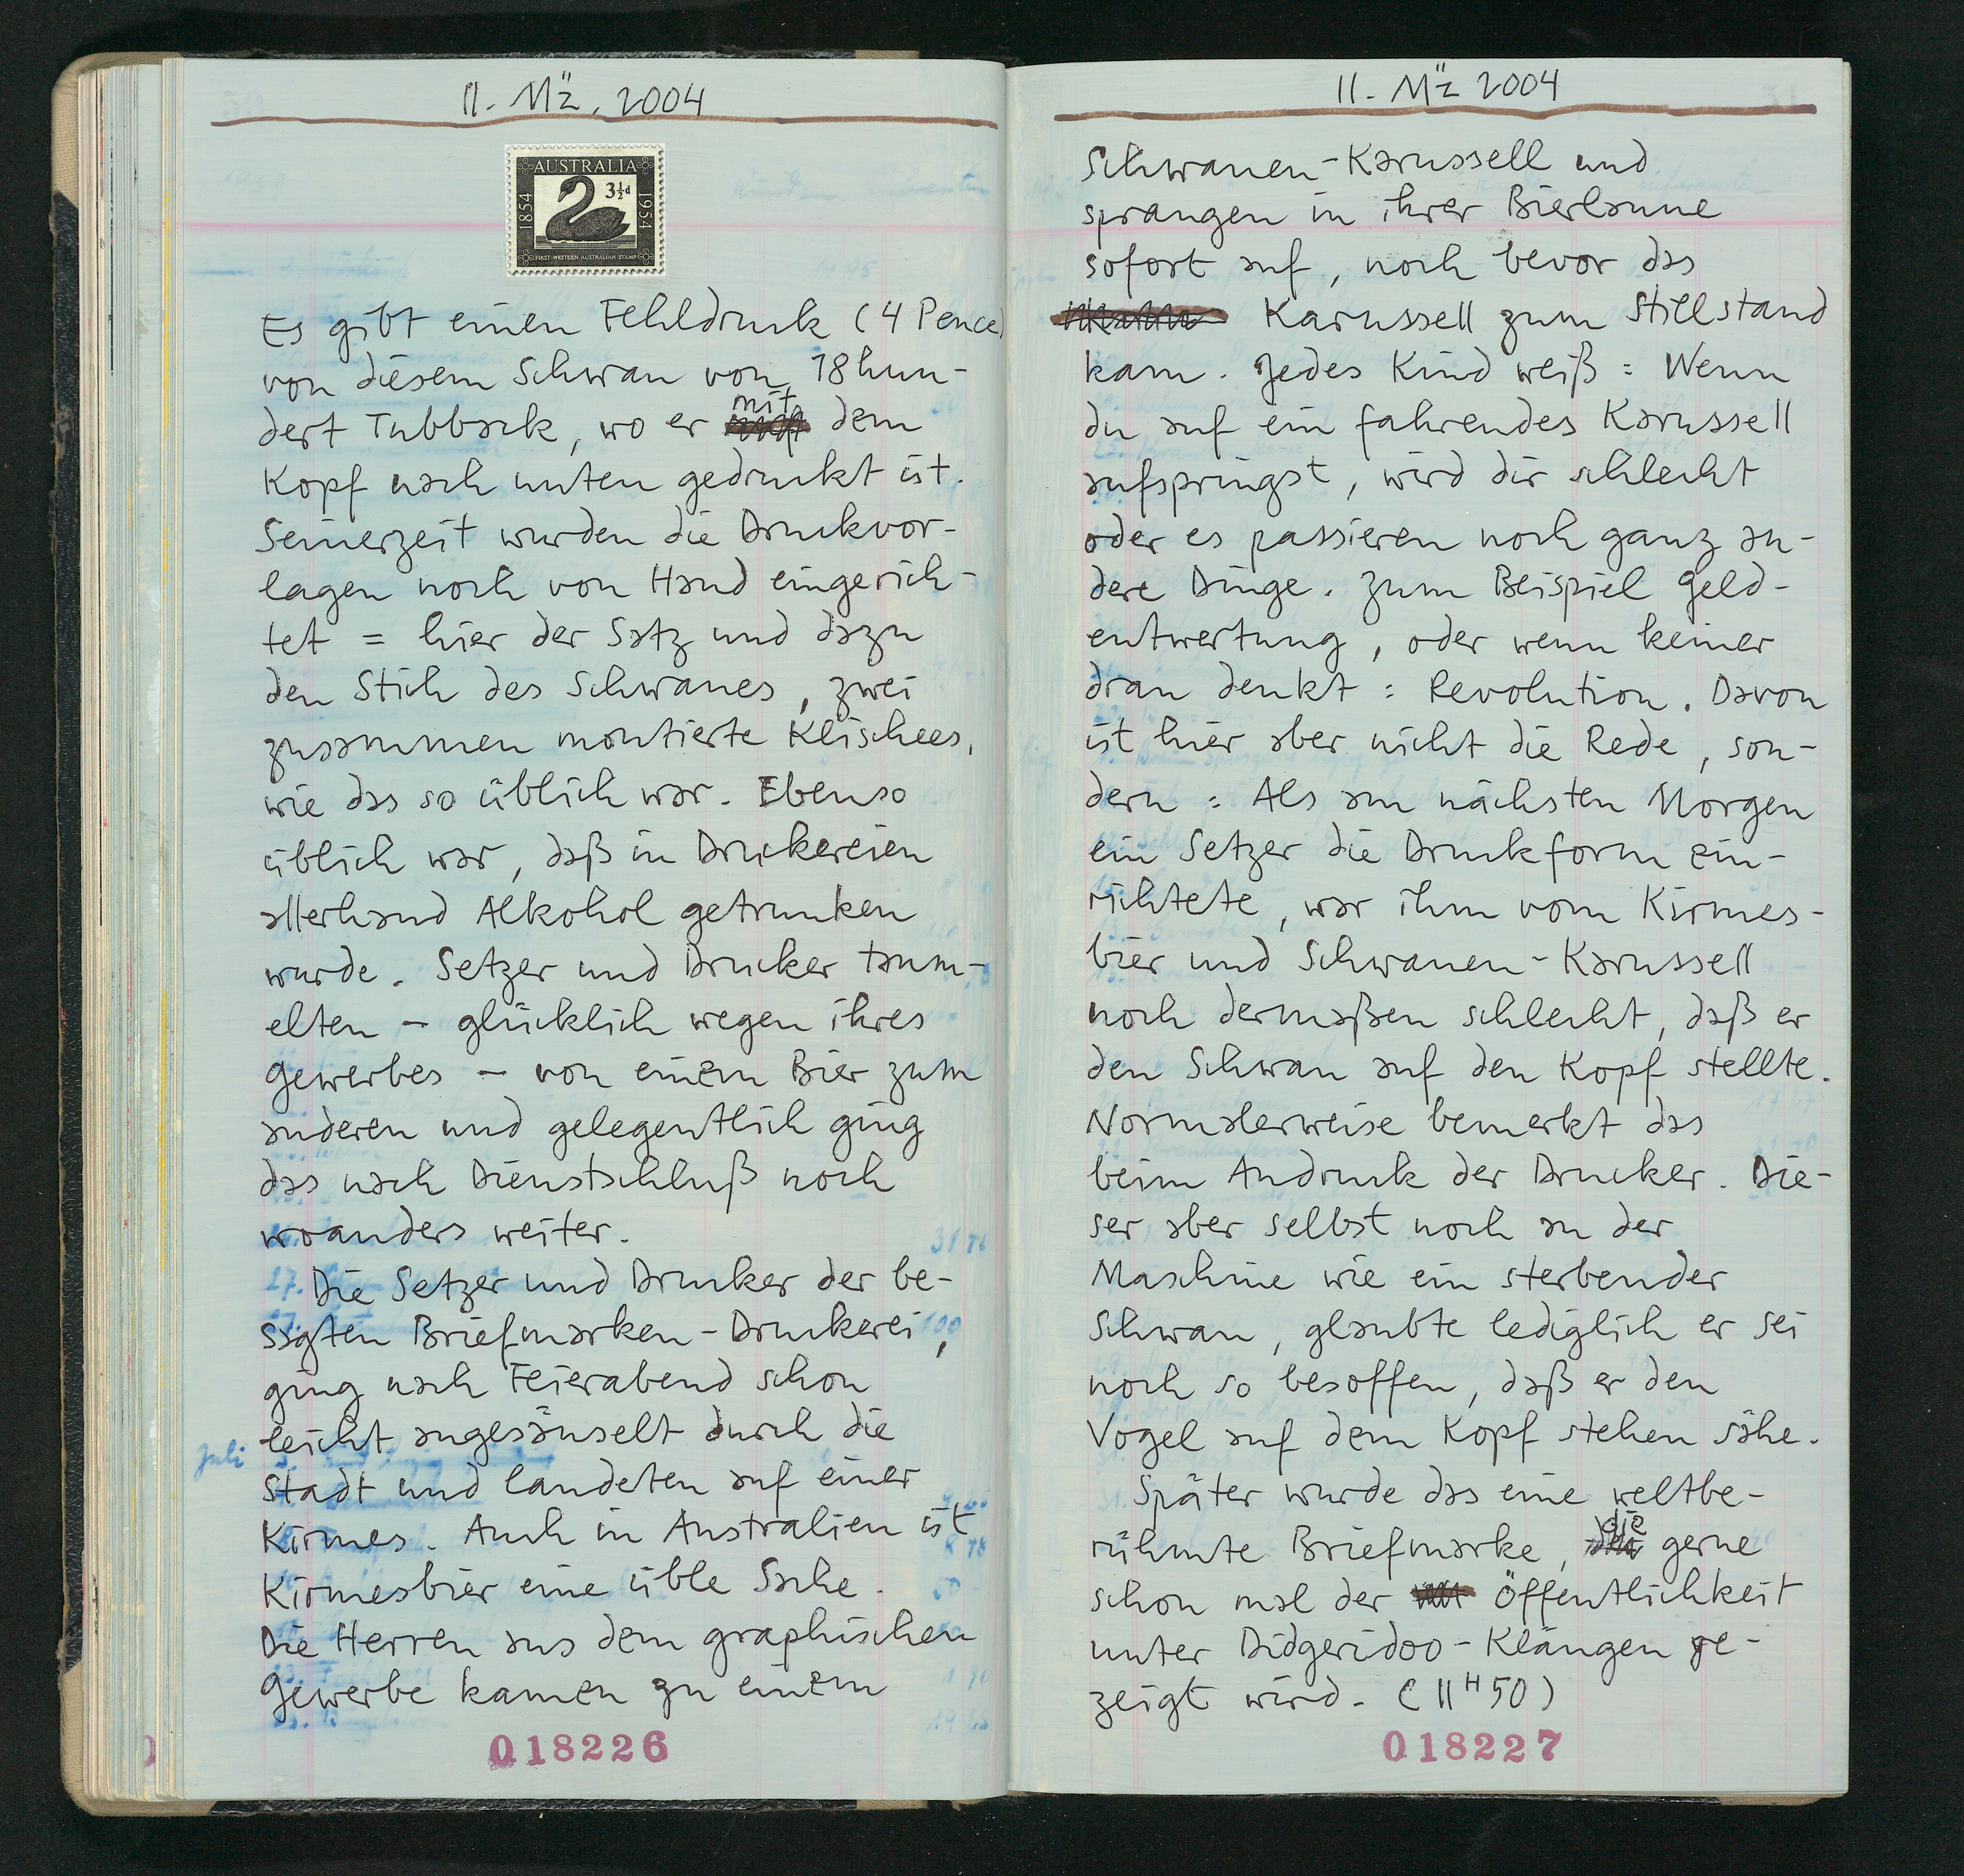 11. Mäz. 2004
AUSTRALIA
1854
3½d
1954
FIRST WESTERN AUSTRALIAN STAMP
Es gibt einen Fehldruck (4 Pence)
von diesem Schwan von 18hun-
dert Tubback, wo er mit dem
Kopf nach unten gedruckt ist.
Seinerzeit wurden die Druckvor-
lagen noch von Hand eingerich-
tet = hier der Satz und dazu
den Stich des Schwanes, zwei
zusammen montierte Klischees,
wie das so üblich war. Ebenso
üblich war, daß in Druckereien
allerhand Alkohol getrunken
wurde. Setzer und Drucker taum-
elten – glücklich wegen ihres
Gewerbes – von einem Bier zum
anderen und gelegentlich ging
das nach Dienstschluß noch
woanders weiter.
Die Setzer und Drucker der be-
sagten Briefmarken-Druckerei,
ging nach Feierabend schon
leicht angesäuselt durch die
Juli
Stadt und landeten auf einer
Kirmes. Auch in Australien ist
Kirmesbier eine üble Sache.
Die Herren aus dem graphischen
Gewerbe kamen zu einem
018226
11. Mäz 2004
Schwanen-Karussell und
sprangen in ihrer Bierlaune
sofort auf, noch bevor das
Karussell zum Stillstand
kam. Jedes Kind weiß: Wenn
du auf ein fahrendes Karussell
aufspringst, wird dir schlecht
oder es passieren noch ganz an-
dere Dinge. Zum Beispiel Geld-
entwertung, oder wenn keiner
dran denkt: Revolution. Davon
ist hier aber nicht die Rede, son-
dern: Als am nächsten Morgen
ein Setzer die Druckform ein-
richtete, war ihm vom Kirmes-
bier und Schwanen-Karussell
noch dermaßen schlecht, daß er
den Schwan auf den Kopf stellte.
Normalerweise bemerkt das
beim Andruck der Drucker. Die-
ser aber selbst noch an der
Maschine wie ein sterbender
Schwan, glaubte lediglich er sei
noch so besoffen, daß er den
Vogel auf dem Kopf stehen sähe.
Später wurde das eine weltbe-
rühmte Briefmarke, die gerne
schon mal der Öffentlichkeit
unter Didgeridoo-Klängen ge-
zeigt wird. (11H50)
018227